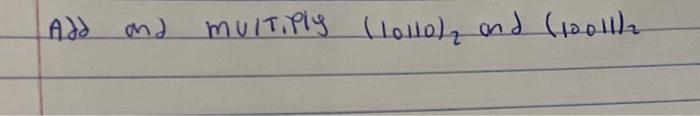 Add and multiply (10110)₂ and (10011)₂